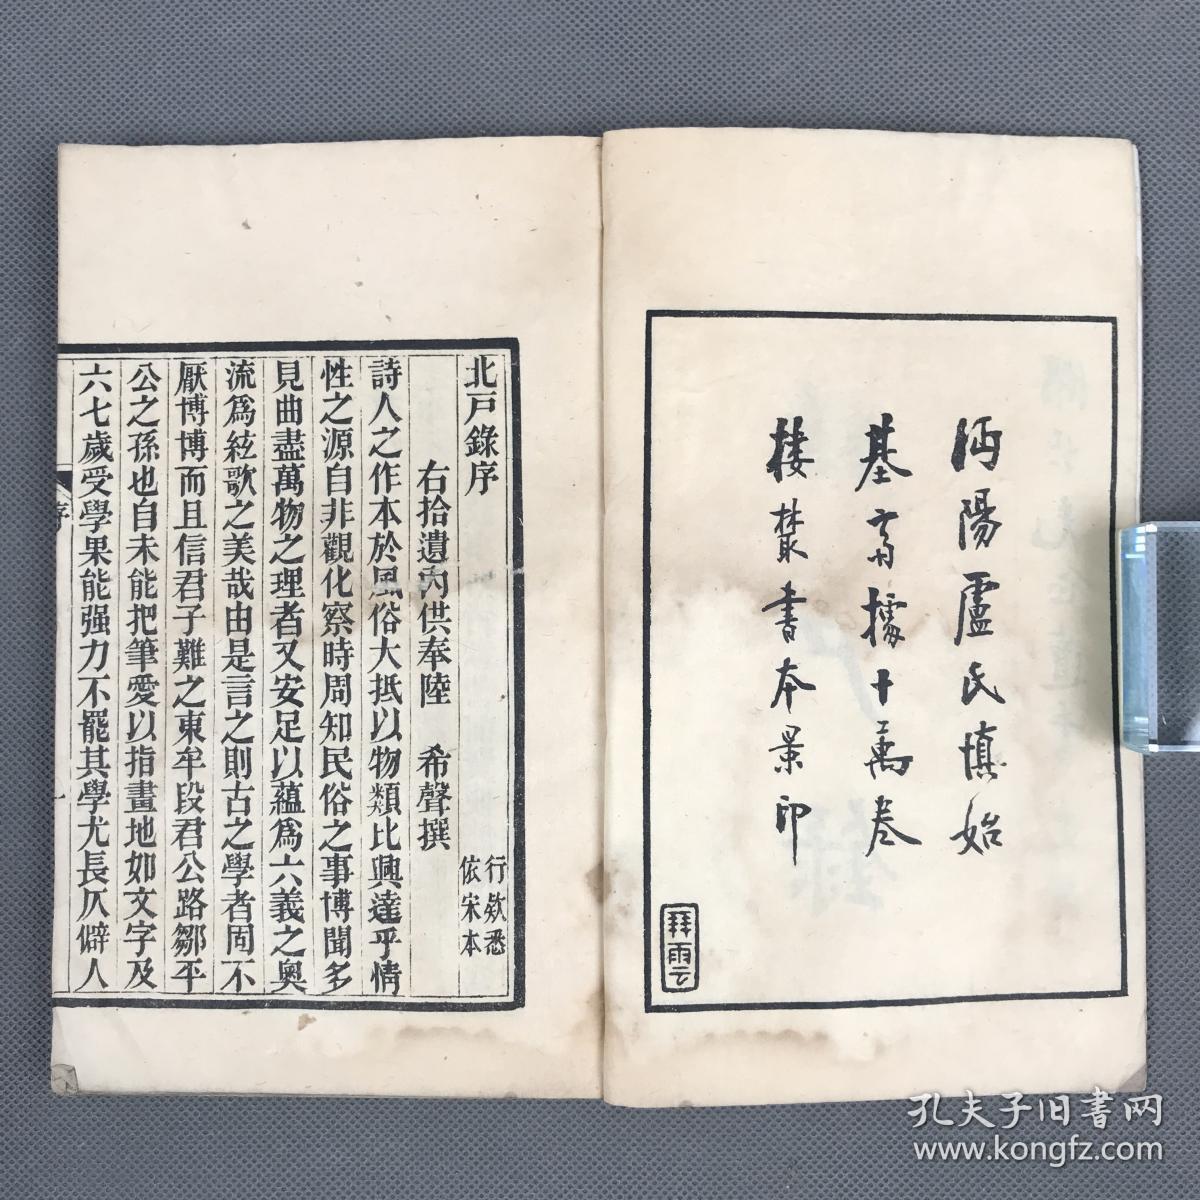 沔陽盧氏慎始
基齋據十萬卷
樓叢書本景印
北戸錄序
行欵悉
依宋本
右拾遺內供奉陸 希聲撰
詩人之作本於風俗大抵以物類比興達乎情
性之源自非觀化察時周知民俗之事博聞多
見曲盡萬物之理者又安足以蘊爲六義之奧
流爲絃歌之美哉由是言之則古之學者固不
厭博博而且信君子難之東牟段君公路鄒平
公之孫也自未能把筆愛以指畫地如文字及
六七歲受學果能强力不罷其學尤長仄僻人
序
一
孔夫子旧书网
www.kongfz.com